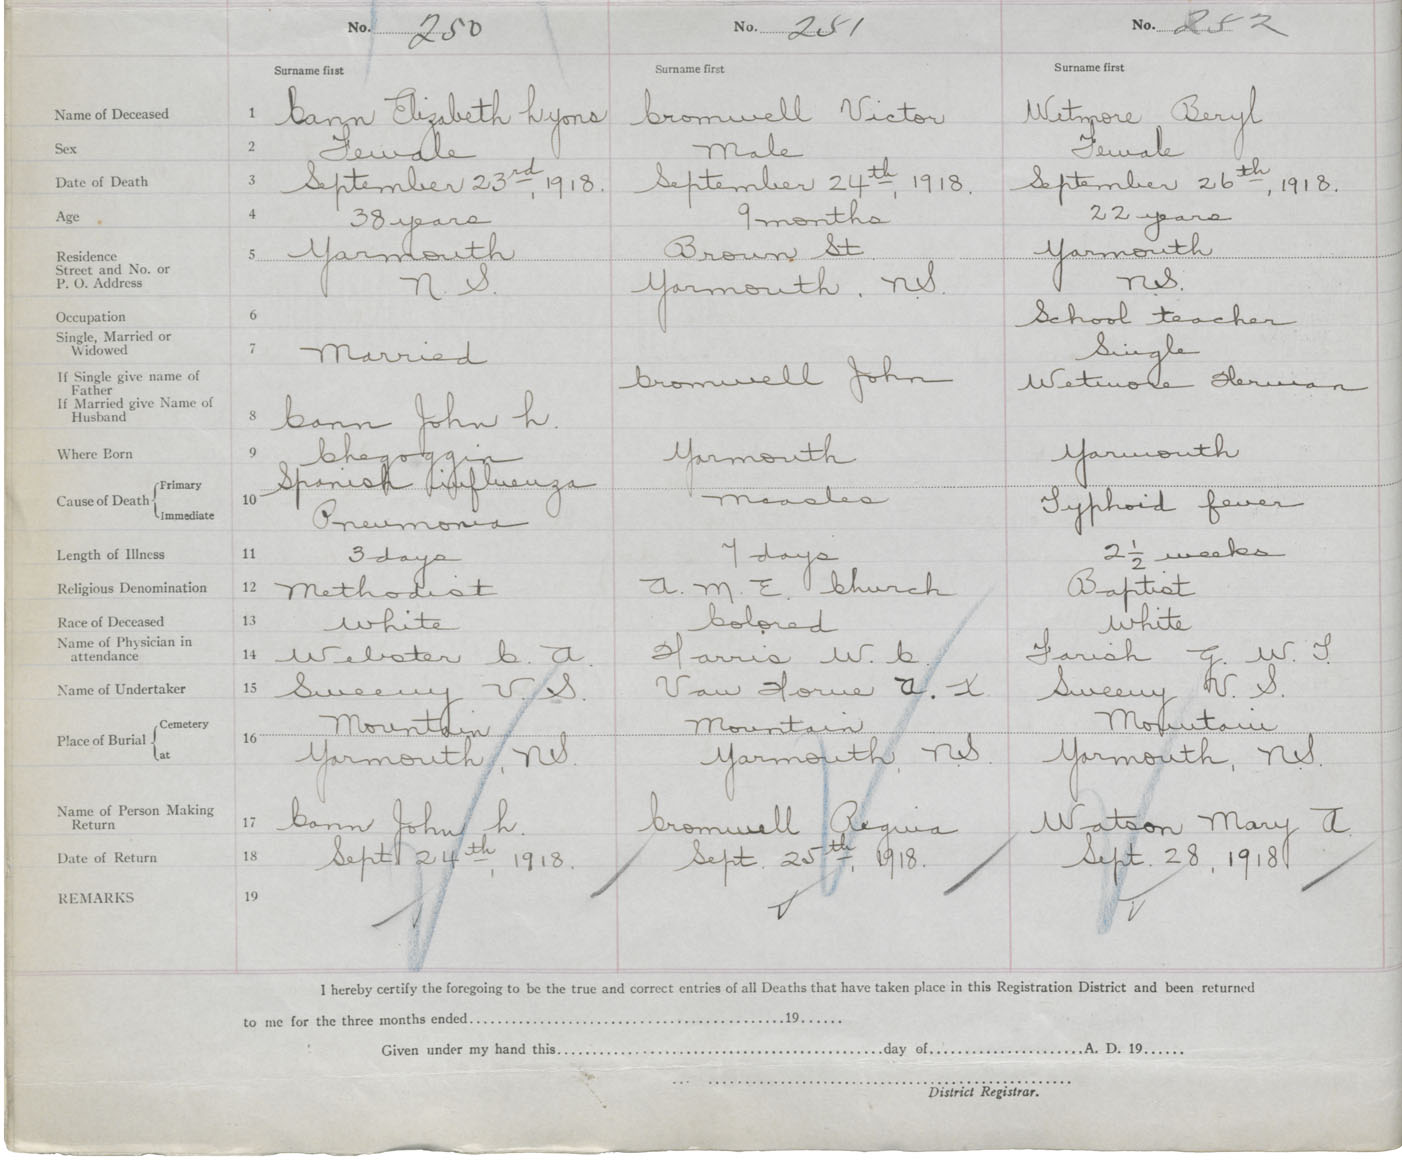 No. 250 No. 251 No. 252
Surname first Surname first Surname first
Name of Deceased 1 Cann Elizabeth Lyons Cromwell Victor Wetmore Beryl
Sex 2 Female Male Female
Date of Death 3 September 23rd, 1918. September 24th, 1918. September 26th, 1918.
Age 4 38 years 9 months 22 years
Residence 5 Yarmouth Brown St Yarmouth
Street and No. or
P. O. Address N. S. Yarmouth, N.S. N.S.
Occupation 6 School teacher
Single, Married or
Widowed 7 Married Single
If Single give name of
Father Cromwell John Wetmore Herman
If Married give Name of
Husband 8 Cann John L.
Where Born 9 Chegoggin Yarmouth Yarmouth
Cause of Death Primary 10 Spanish influenza Measles Typhoid fever
Immediate Pneumonia
Length of Illness 11 3 days 7 days 2 1/2 weeks
Religious Denomination 12 Methodist A. M. E. Church Baptist
Race of Deceased 13 White Colored White
Name of Physician in
attendance 14 Webster C. A. Harris W. C. Farish G. W. T.
Name of Undertaker 15 Sweeny V. S. Van Horne A. K. Sweeny V. S.
Place of Burial Cemetery 16 Mountain Mountain Mountain
at Yarmouth, N.S. Yarmouth, N.S. Yarmouth, N.S.
Name of Person Making
Return 17 Cann John L. Cromwell Regina Watson Mary A.
Date of Return 18 Sept. 24th, 1918. Sept. 25th, 1918. Sept. 28, 1918
REMARKS 19
I hereby certify the foregoing to be the true and correct entries of all Deaths that have taken place in this Registration District and been returned
to me for the three months ended........................................19......
Given under my hand this..........................................day of......................A. D. 19......
District Registrar.